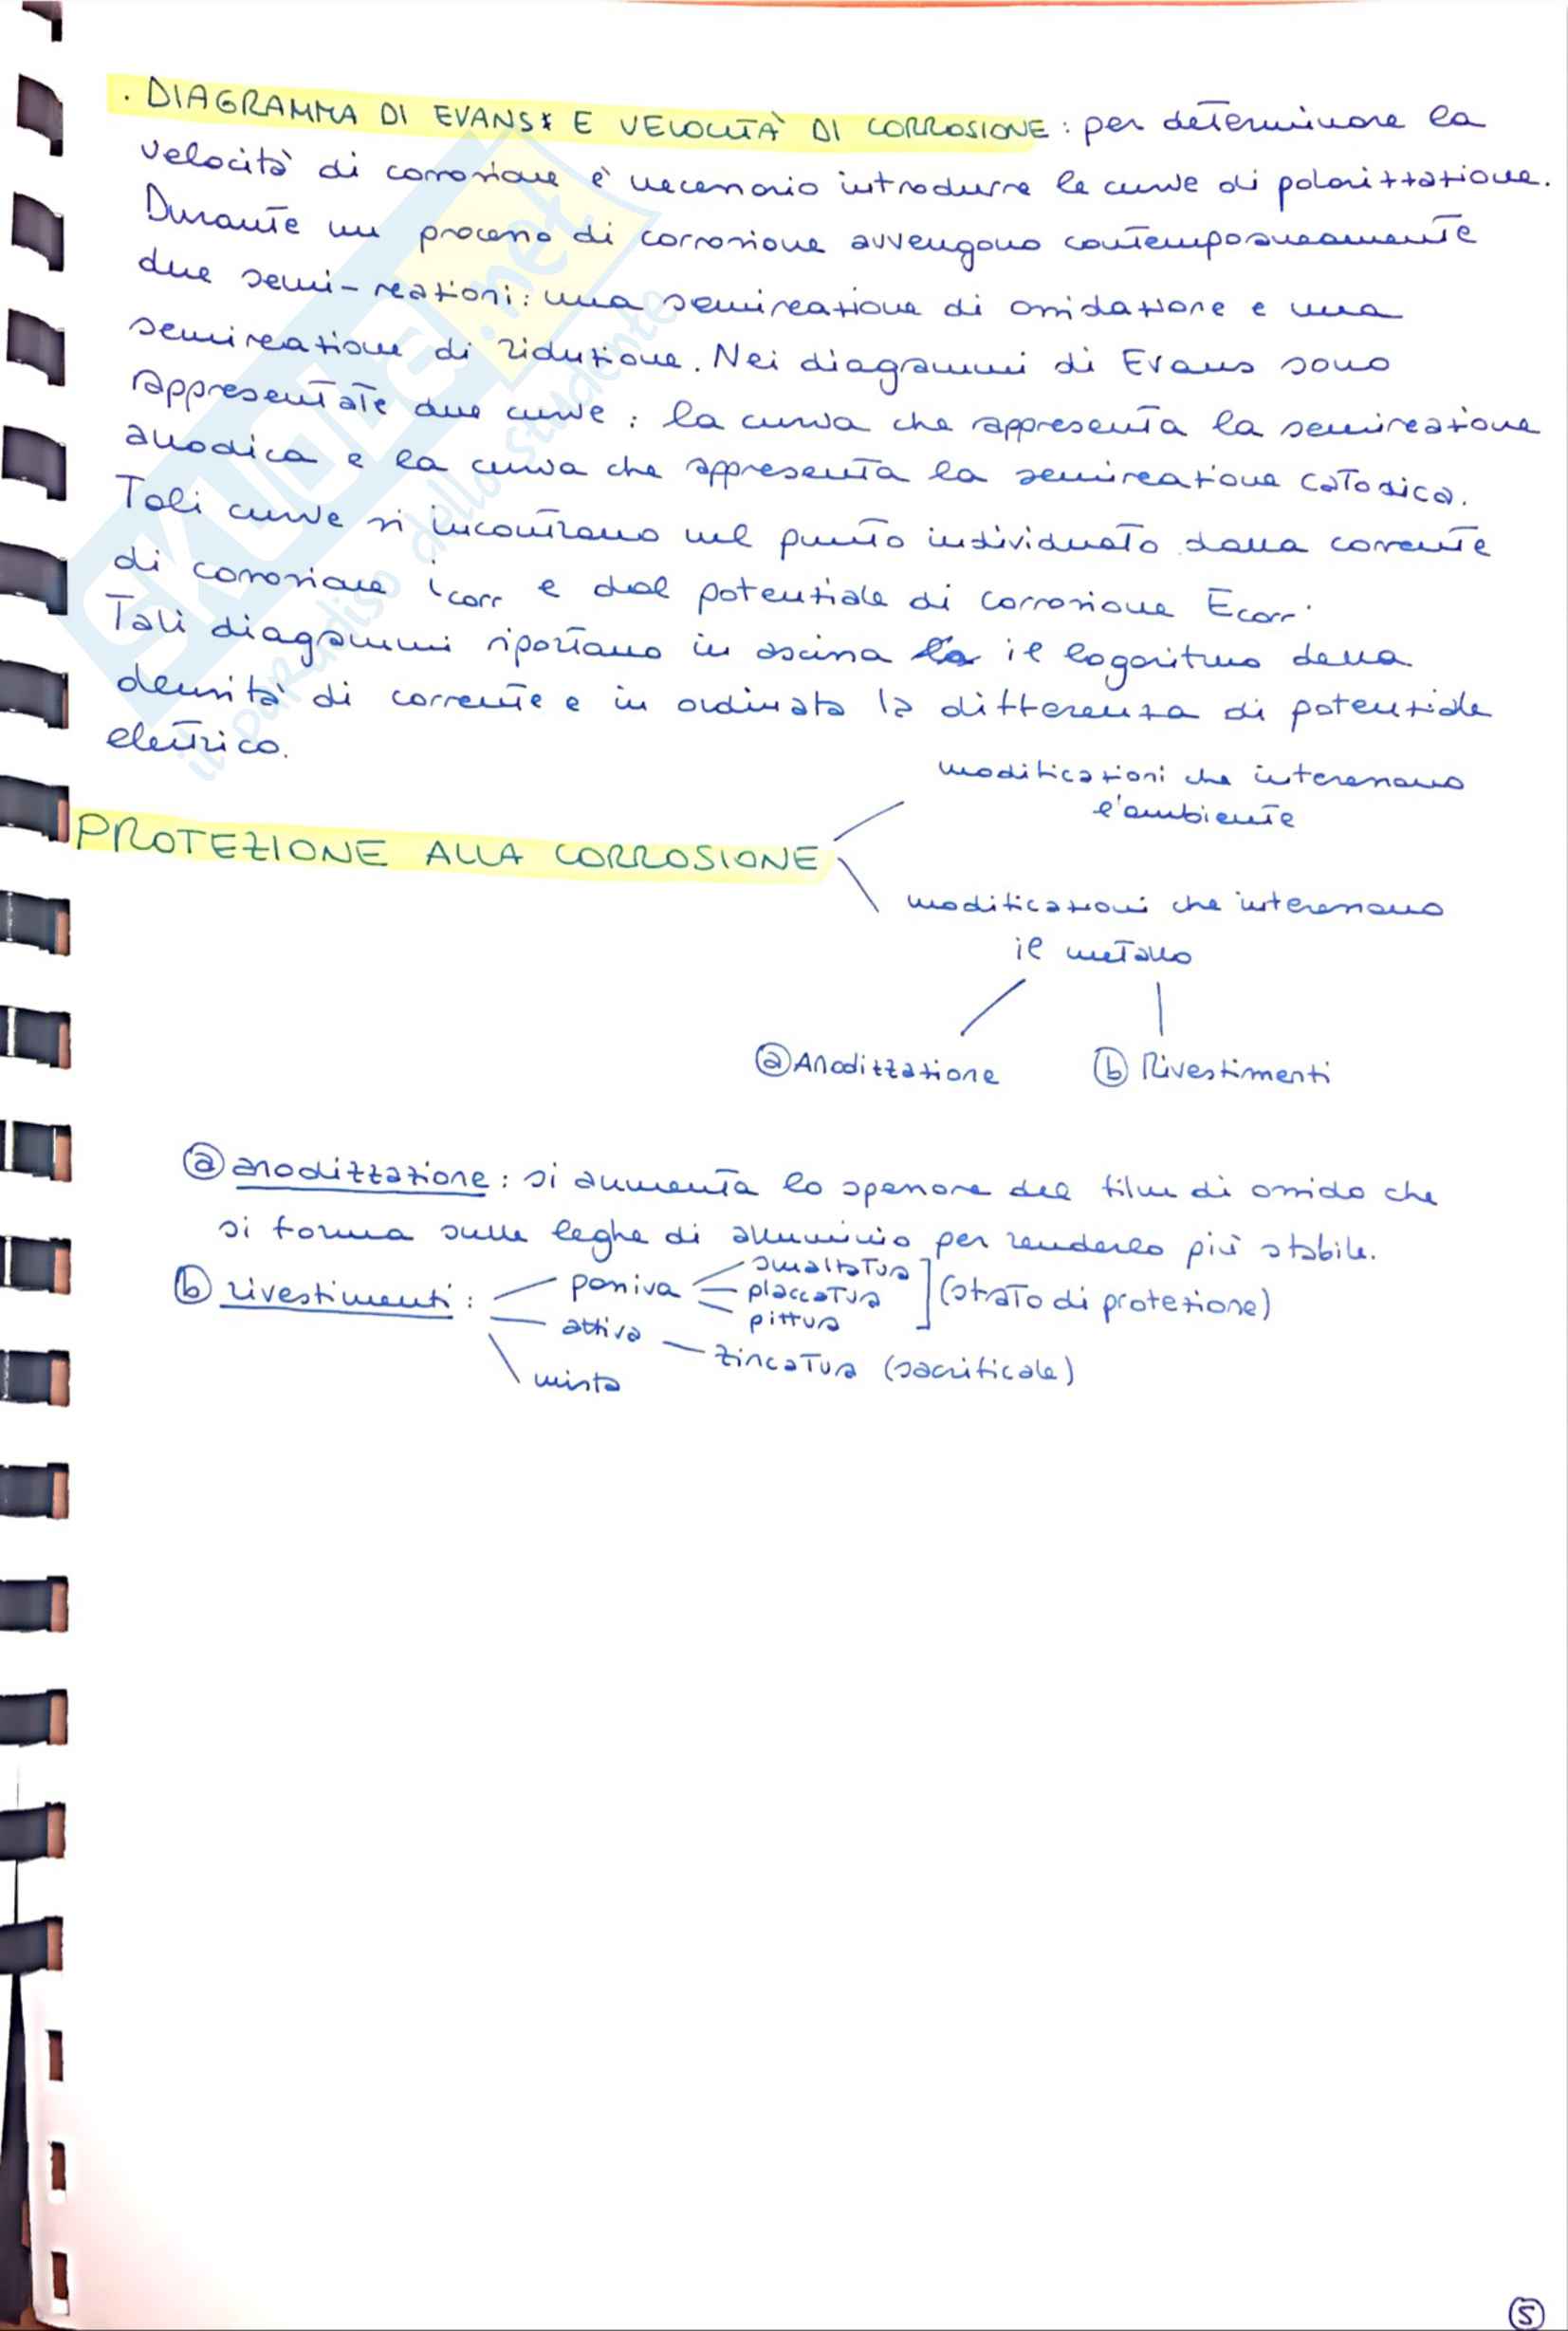 . DIAGRAMMA DI EVANS E VELOCITÀ DI CORROSIONE : per determinare la
velocità di corrosione è necessario introdurre le curve di polarizzazione.
Durante un processo di corrosione avvengono contemporaneamente
due semi-reazioni: una semireazione di ossidazione e una
semireazione di riduzione. Nei diagrammi di Evans sono
rappresentate due curve : la curva che rappresenta la semireazione
anodica e la curva che rappresenta la semireazione catodica.
Tali curve si incontrano nel punto individuato dalla corrente
di corrosione icorr e dal potenziale di corrosione Ecorr.
Tali diagrammi riportano in ascissa il logaritmo della
densità di corrente e in ordinata la differenza di potenziale
elettrico.
modificazioni che interessano
l'ambiente
PROTEZIONE ALLA CORROSIONE
modificazioni che interessano
il metallo
ⓐ Anodizzazione ⓑ Rivestimenti
ⓐ anodizzazione : si aumenta lo spessore del film di ossido che
si forma sulle leghe di alluminio per renderlo più stabile.
ⓑ rivestimenti :
passiva
smaltatura
placcatura
pittura
(strato di protezione)
attiva
zincatura (sacrificale)
mista
SKUOLA.net
il paradiso dello studente
⑤